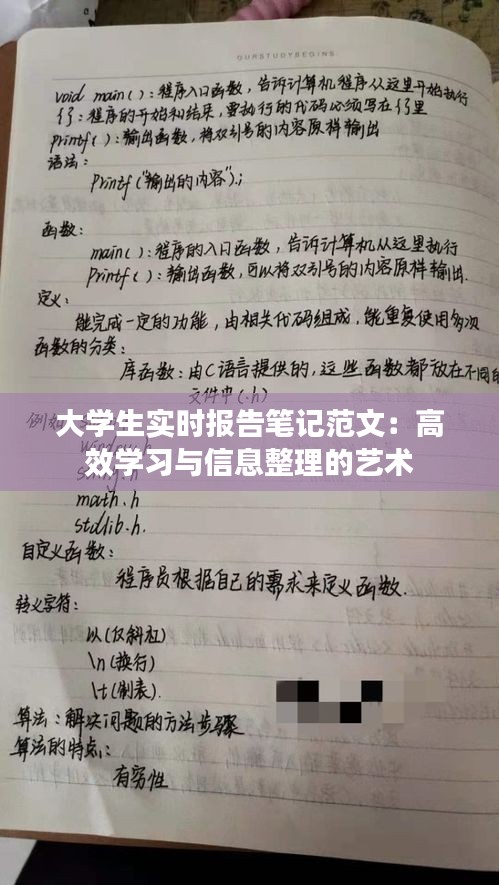 OURSTUDYBEGINS
void main()：程序入口函数，告诉计算机程序从这里开始执行
{}：程序的开始和结束，要执行的代码必须写在{}里
printf()：输出函数，将双引号的内容原样输出
语法：
printf("输出的内容")；
函数：
main()：程序的入口函数，告诉计算机从这里执行
printf()：输出函数，可以将双引号的内容原样输出.
定义：
能完成一定的功能，由相关代码组成，能重复使用多次
函数的分类：
库函数：由C语言提供的，这些函数都放在不同的
文件中(.h)
例如
大学生实时报告笔记范文：高
效学习与信息整理的艺术
math.h
stdlib.h.
自定义函数：
程序员根据自己的需求来定义函数.
转义字符：
(仅斜杠)
\n(换行)
\t(制表).
算法：解决问题的方法步骤
算法的特点：
有穷性